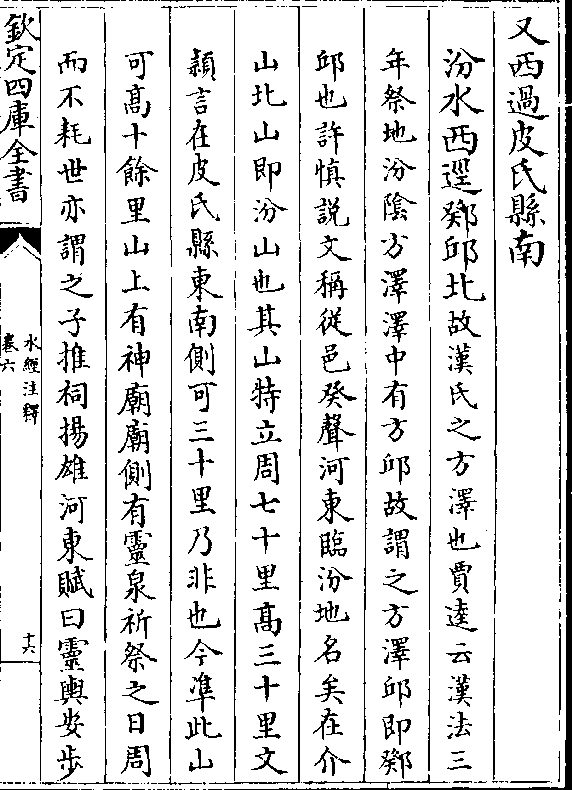 又西過皮氏縣南
汾水西逕鄈邱北故漢氏之方澤也賈逵云漢法三
年祭地汾陰方澤澤中有方邱故謂之方澤邱即鄈
邱也許慎説文稱從邑癸聲河東臨汾地名矣在介
山北山即汾山也其山特立周七十里高三十里文
穎言在皮氏縣東南側可三十里乃非也今準此山
可高十餘里山上有神廟廟側有靈泉祈祭之日周
而不耗世亦謂之子推祠揚雄河東賦曰靈輿安步
欽定四庫全書
水經注釋
卷六
十六